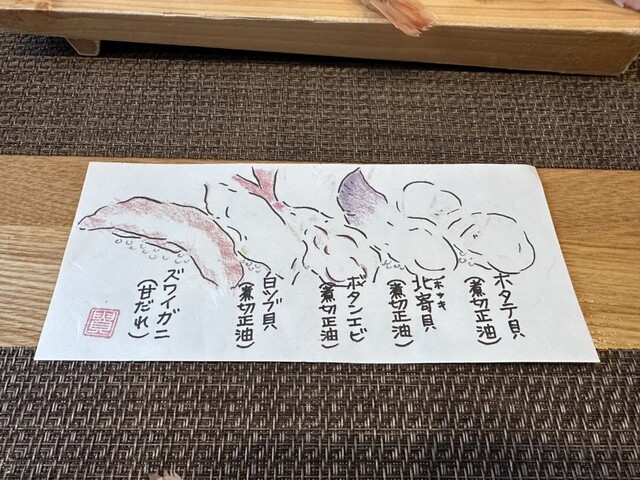 ホタテ貝
(煮切正油)
ホッキ
北寄貝
(煮切正油)
ボタンエビ
(煮切正油)
白ツブ貝
(煮切正油)
ズワイガニ
(甘だれ)